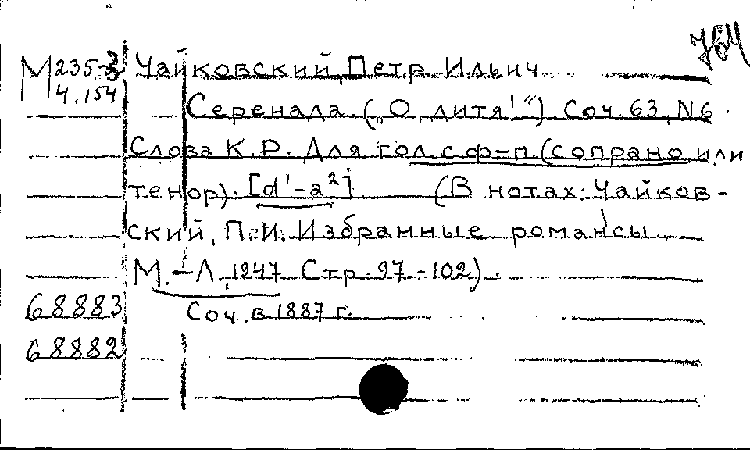 764
М235-3 Чайковский, Петр Ильич
4.154
Серенада. („О, дитя!“) Соч. 63, №6.
Слова К.Р. Для гол. с ф-п (сопрано или
тенор). [d'-a²] (В нотах: Чайков-
ский, П.И. Избранные романсы.
М.-Л., 1947 Стр. 97-102).
68883 Соч. в 1887 г.
68882